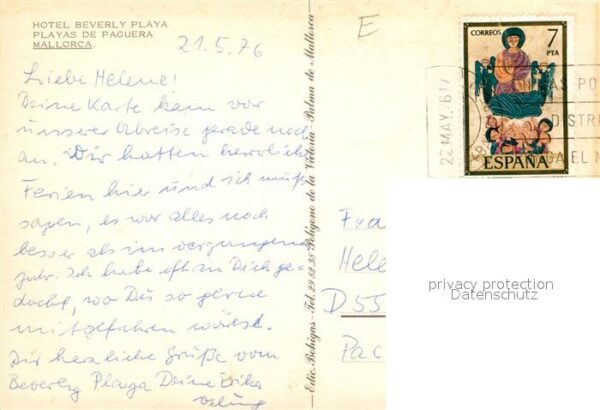 HOTEL BEVERLY PLAYA
PLAYAS DE PAGUERA
MALLORCA
21.5.76
E
Liebe Helene!
Deine Karte kam vor
unserer Abreise gerade noch
an, Wir hatten herrliche
Ferien hier und ich muß
sagen, es war alles noch
besser als im vergangenen
Jahr. Ich habe oft an Dich ge-
dacht, wo Du so gerne
mitgefahren wärest.
Dir herzliche Grüße vom
Beverly Playa Deine Erika
Edic. Bohigas - Tel. 29 82 38 Polígono de la Victoria - Palma de Mallorca
CORREOS
7
PTA
ESPAÑA
22 MAY. 6
Fra
Hele
D 55
Pac
privacy protection
Datenschutz